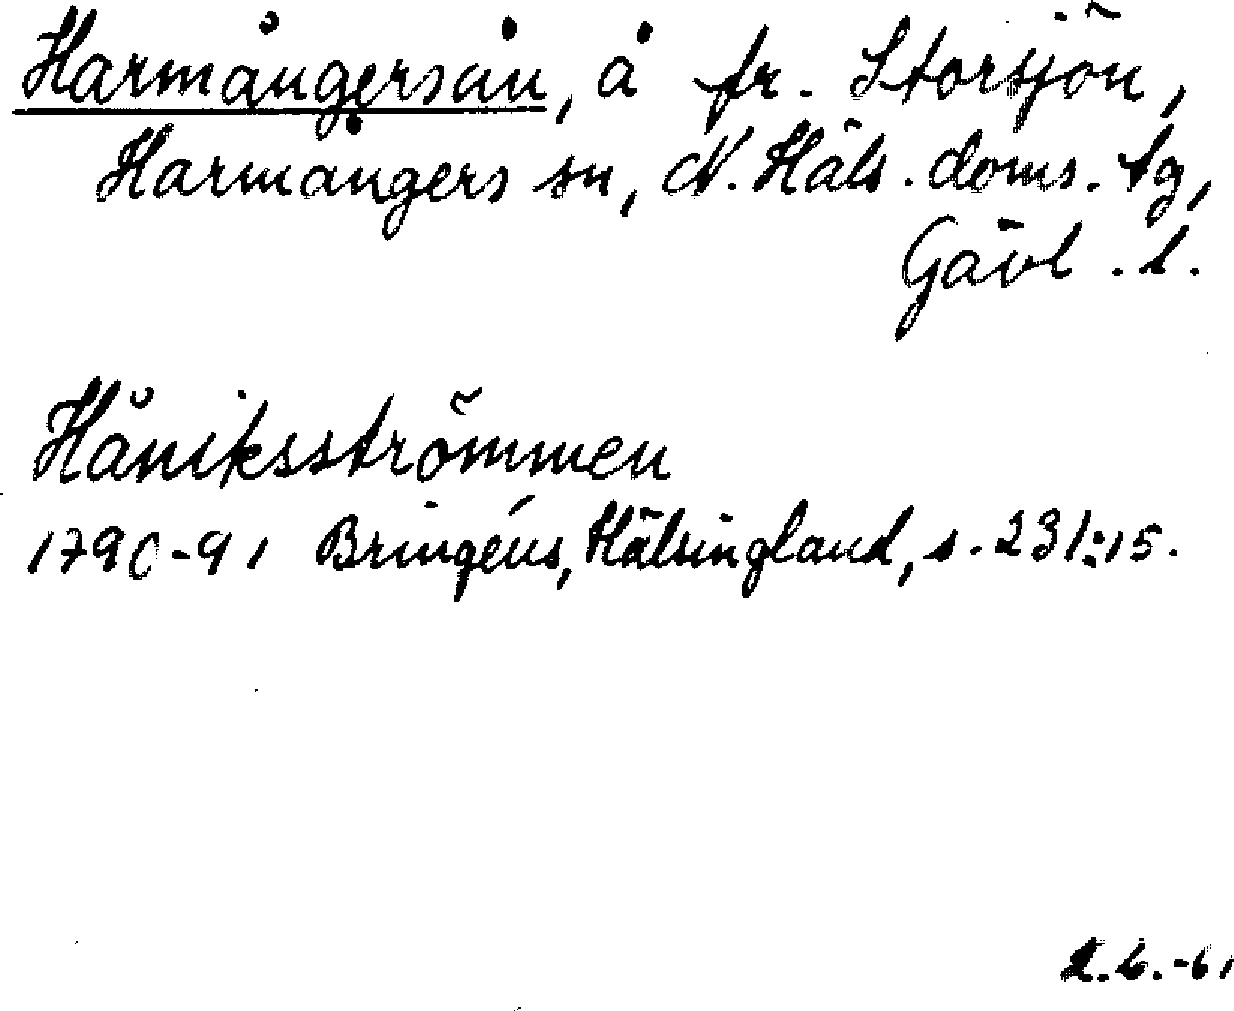 Harmångersån, å fr. Storsjön,
Harmångers sn, N. Häls. doms. tg,
Gävl. l.
Håniksströmmen
1790-91 Bringéus, Hälsingland, s. 231:15.
2.6.-61